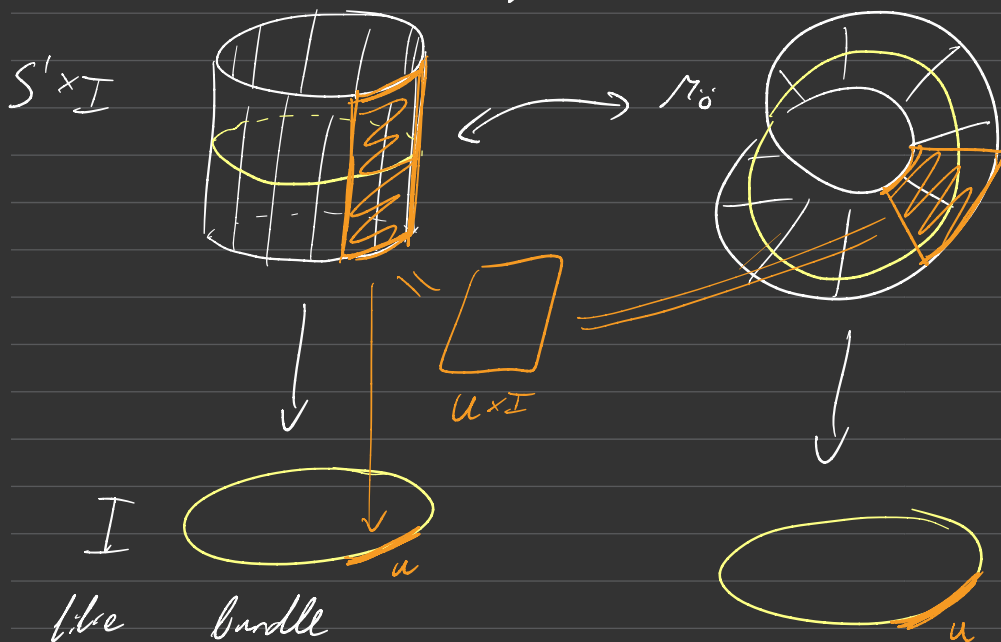 S¹×I
Mö
U×I
I
u
like bundle
u